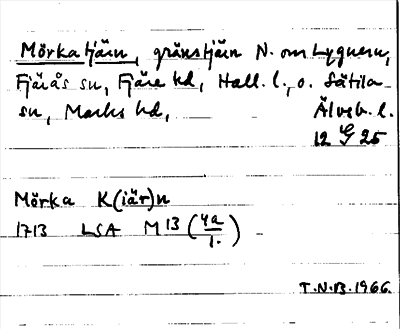 Mörka tjärn, gränstjärn N. om Lygnern,
Fjärås sn, Fjäre hd, Hall. l., o. Sätila
sn, Marks hd, Älvsb. l.
12 G 25
Mörka K(iär)n
1713 LSA M 13 (4a/1.)
T.N.B. 1966.